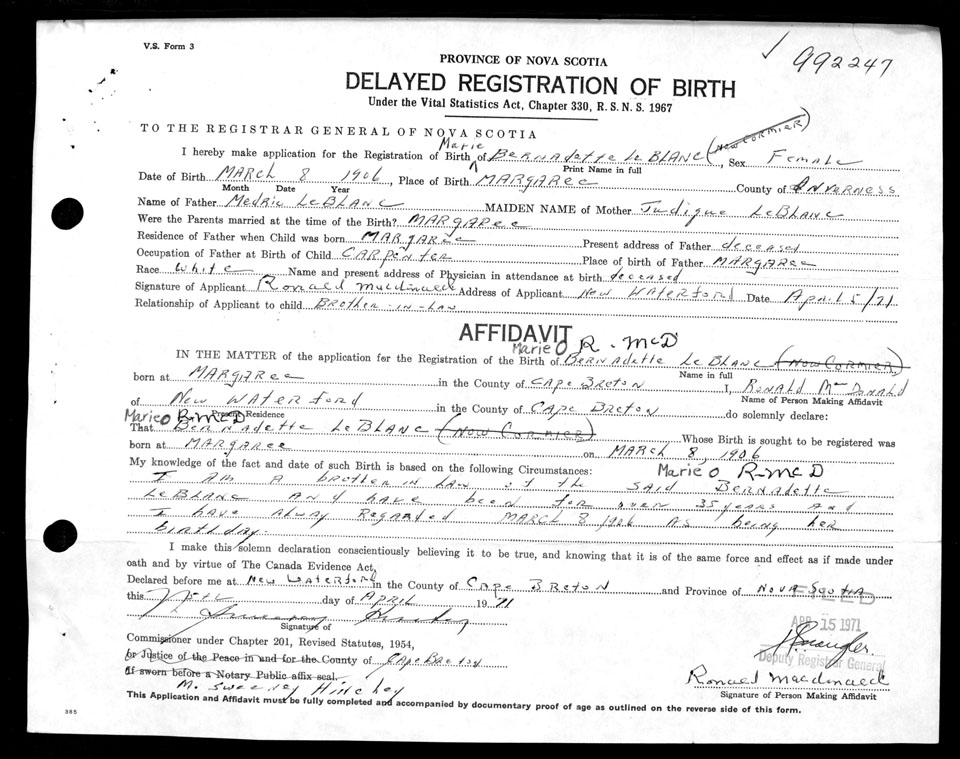 V.S. Form 3
992247
PROVINCE OF NOVA SCOTIA
DELAYED REGISTRATION OF BIRTH
Under the Vital Statistics Act, Chapter 330, R.S.N.S. 1967
TO THE REGISTRAR GENERAL OF NOVA SCOTIA
Marie (NOW CORMIER)
I hereby make application for the Registration of Birth of BERNADETTE LE BLANC, Sex Female
Print Name in full
Date of Birth MARCH 8 1906, Place of Birth MARGAREE County of INVARNESS
Month Date Year
Name of Father Medric LeBLANC MAIDEN NAME of Mother Judique LeBLANC
Were the Parents married at the time of the Birth? MARGAREE
Residence of Father when Child was born MARGAREE Present address of Father deceased
Occupation of Father at Birth of Child CARPENTER Place of birth of Father MARGAREE
Race White Name and present address of Physician in attendance at birth deceased
Signature of Applicant Ronald Macdonald Address of Applicant New Waterford Date April 5/71
Relationship of Applicant to child BROTHER-in-LAW
AFFIDAVIT
Marie O R. McD
IN THE MATTER of the application for the Registration of the Birth of BERNAdette LeBLANC (NOW CORMIER)
Name in full
born at MARGAREE in the County of CAPE BRETON I, RONALD MacDONALD
Name of Person Making Affidavit
of New WATERFORD in the County of CAPE BRETON do solemnly declare:
Present Residence
Marie O R. McD
That BERNADETTE LeBLANC (NOW CORMIER) Whose Birth is sought to be registered was
born at MARGAREE on MARCH 8, 1906
My knowledge of the fact and date of such Birth is based on the following Circumstances: Marie O R-McD
I AM A BROTHER IN LAW of the SAID BERNAdette
LeBLANC AND have been for over 35 years AND
I have Alway Regarded MARCH 8 1906 AS being her
birthday.
I make this solemn declaration conscientiously believing it to be true, and knowing that it is of the same force and effect as if made under
oath and by virtue of The Canada Evidence Act,
Declared before me at New Waterford in the County of CAPE BRETON and Province of NOVA Scotia
this day of APRIL 1971
APR 15 1971
Signature of
Commissioner under Chapter 201, Revised Statutes, 1954,
or Justice of the Peace in and for the County of Cape Breton
Deputy Registrar General
If sworn before a Notary Public affix seal.
M. Sweeney Hinchey
Ronald Macdonald
Signature of Person Making Affidavit
This Application and Affidavit must be fully completed and accompanied by documentary proof of age as outlined on the reverse side of this form.
385